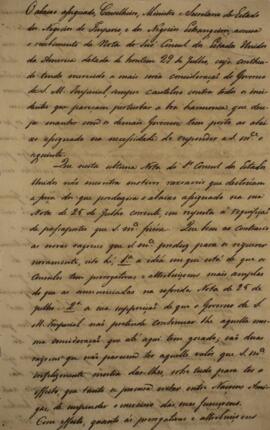 O abaixo assignado, Conselheiro, Ministro e Secretario de Estado
dos Negocios do Imperio, e dos Negocios Estrangeiros, accusa
o recebimento da Nota do Snr. Consul dos Estados Unidos
da America datada de hontem 29 de Julho, cujo conthe-
udo tendo merecido a mais seria consideração do Governo
de S. M. Imperial, sempre cautelozo contra todos os inci-
dentes que pareçam perturbar a boa harmonia que dese-
ja manter com os demais Governos tem posto ao abai-
xo assignado na necessidade de responder a S. m.ce o
seguinte.
Leu nesta ultima Nota do Sr. Consul dos Estados
Unidos não encontra motivos razoaveis que destruam
a fora do que produzira o abaixo assignado na sua
Nota de 25 de Julho corrente, em resposta á requisição
de passaportes que S. m.ce fizera. Leu bem ao contrario
as novas razoens que S. m.ce produz para o requerer
novamente, isto é, 1.ª a idéa em que está de que os
Consules tem prerogativas e attribuiçoens mais amplas
do que as annunciadas na referida Nota de 25 de
Julho 2.ª a sua supposição de que o Governo de S.
M. Imperial não pretende continuar-lhe aquella mesma
consideração que ate aqui tem gozado, são duas
razoens que não parecem ter aquelle valor que S. m.ce
infelizmente intenta dar-lhes, sobre tudo para ter o
effeito, que tanto a prezença verias entre Nossos Ami-
gos, de suspender o exercicio das suas funcçoens.
Com effeito, quanto ás prerogativas e attribuiçoens